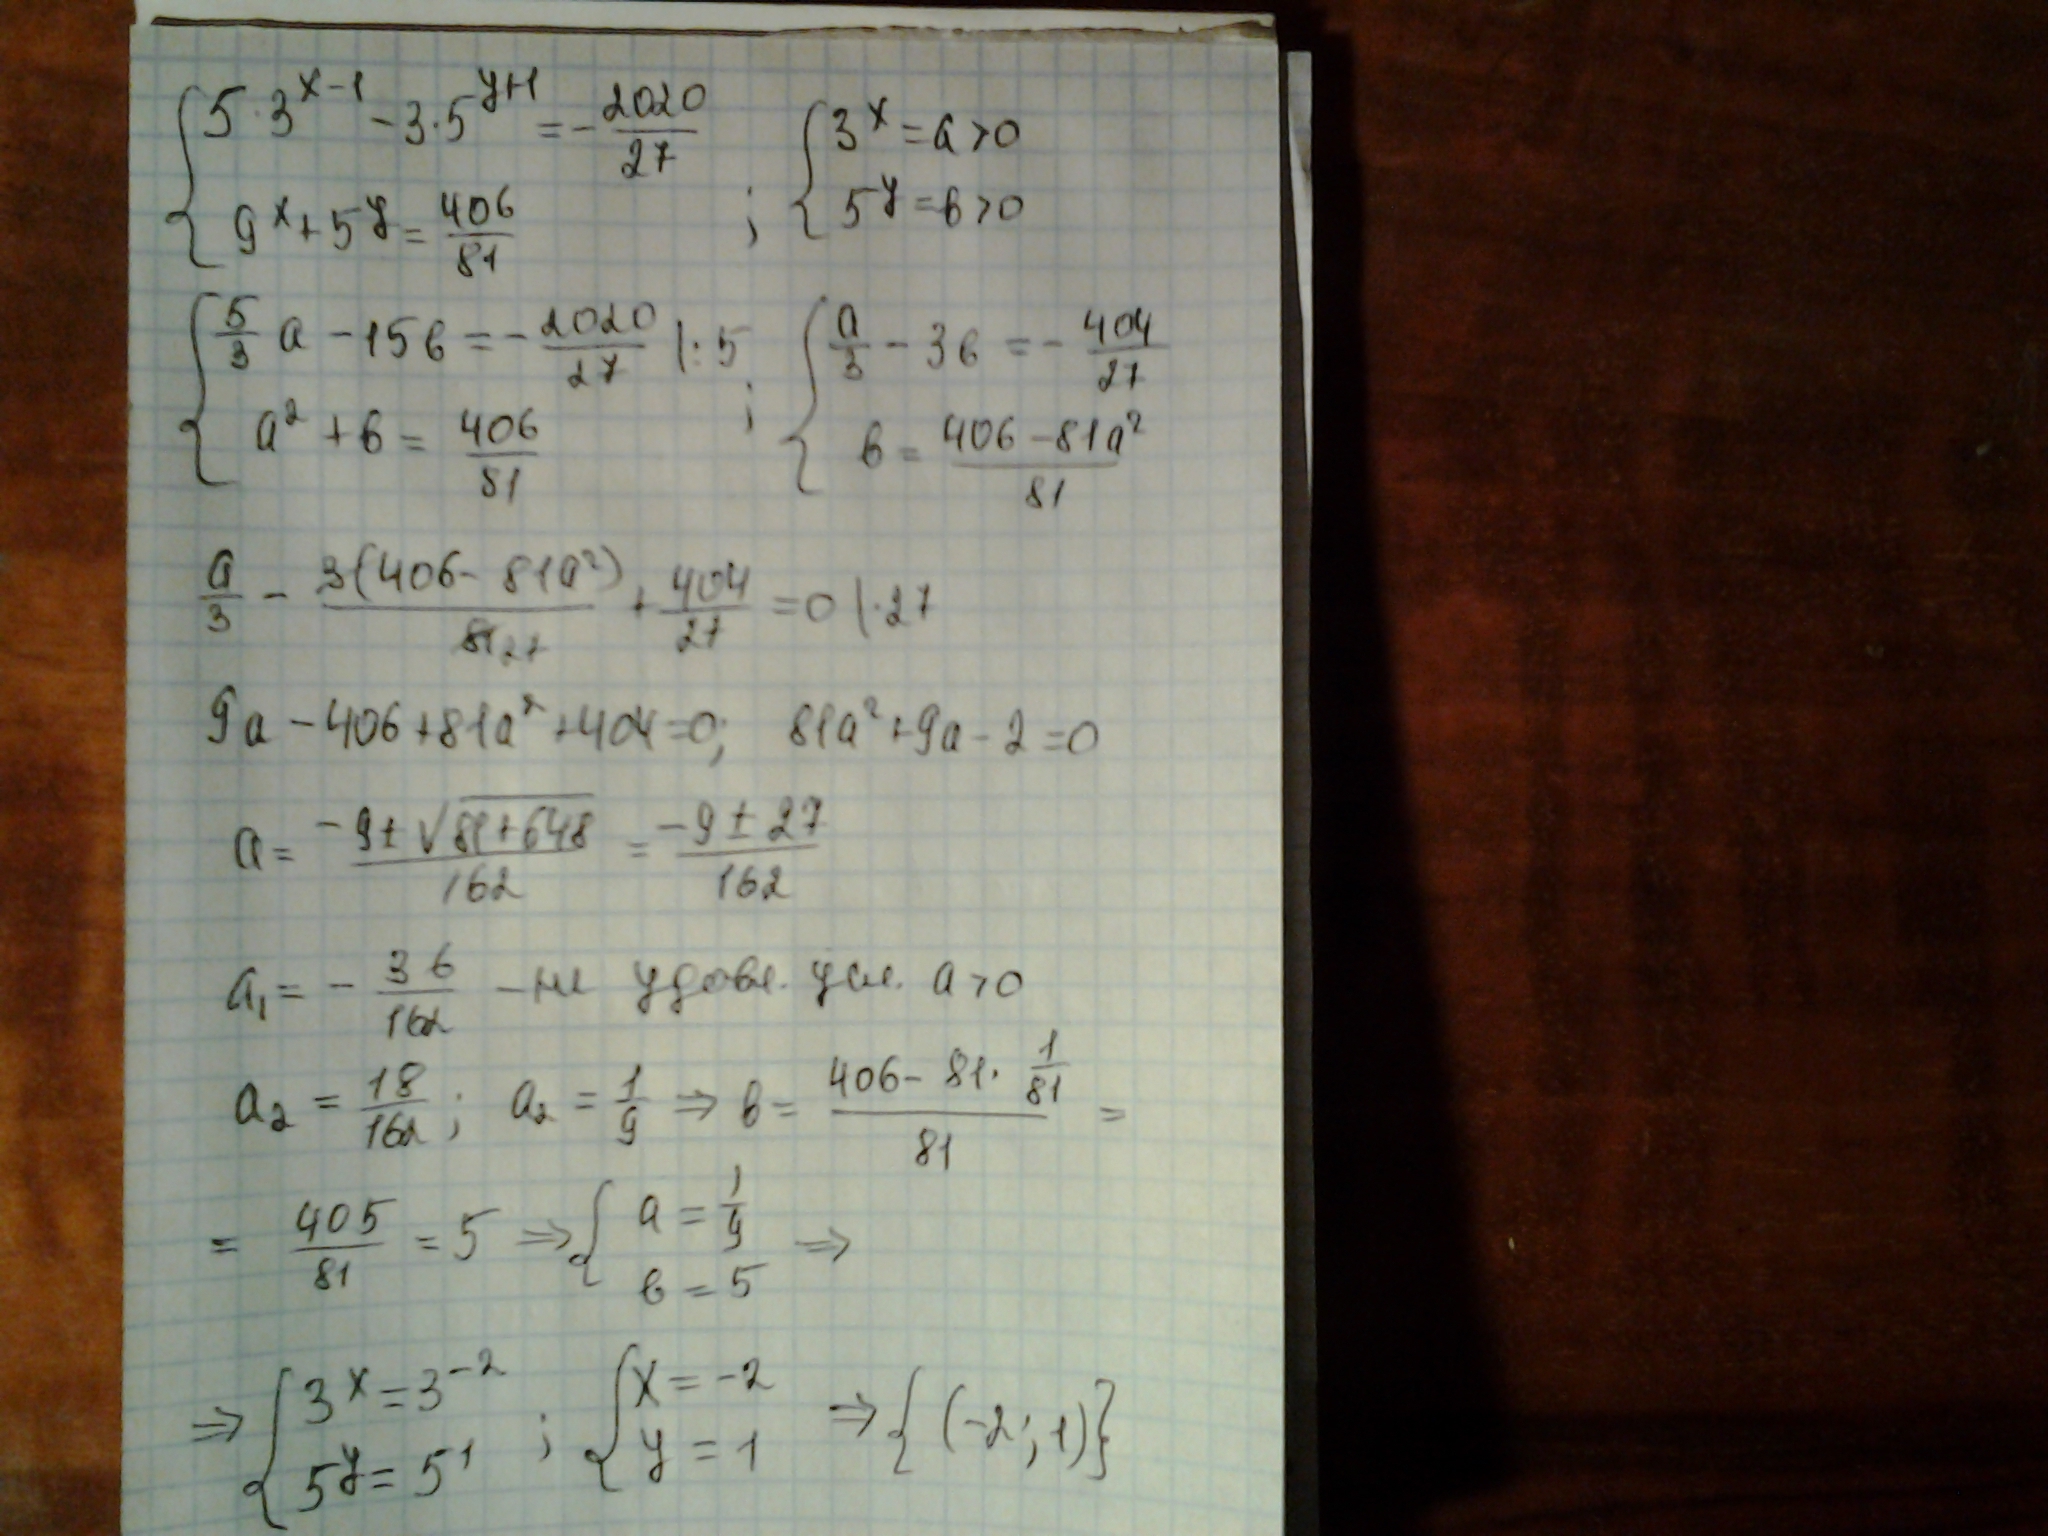 { 5·3^(x-1) - 3·5^(y+1) = -2020/27 ; { 3^x = a > 0
9^x + 5^y = 406/81 5^y = в > 0
{ 5/3 a - 15в = -2020/27 |:5 ; { a/3 - 3в = -404/27
a² + в = 406/81 в = (406 - 81a²)/81
a/3 - 3(406 - 81a²)/81 27 + 404/27 = 0 |·27
9a - 406 + 81a² + 404 = 0; 81a² + 9a - 2 = 0
a = (-9 ± √(81+648))/162 = (-9 ± 27)/162
a₁ = -36/162 - не удовл. усл. a > 0
a₂ = 18/162; a₂ = 1/9 ⇒ в = (406 - 81·1/81)/81 =
= 405/81 = 5 ⇒ { a = 1/9 ⇒
в = 5
⇒ { 3^x = 3^(-2) ; { x = -2 ⇒ {(-2; 1)}
5^y = 5^1 y = 1